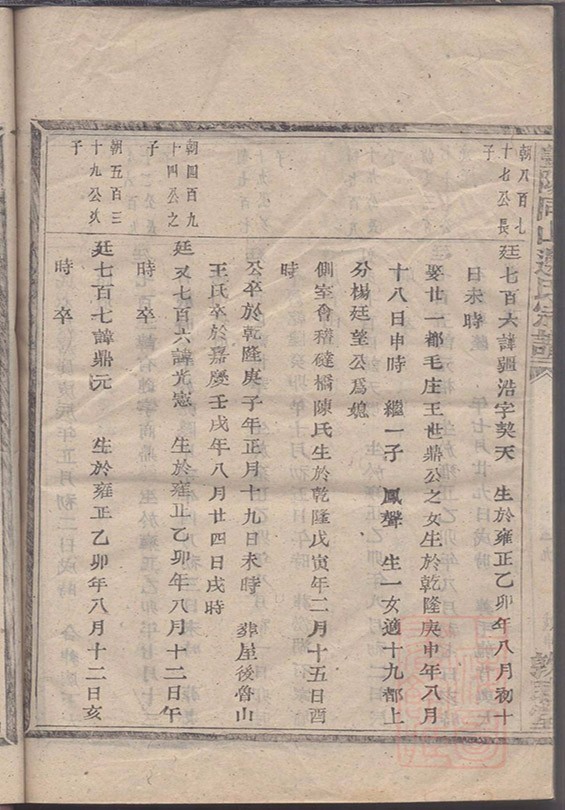 朝八百七
十七公長
子
廷七百六諱疆浩字契天　生於雍正乙卯年八月初十
日未時
娶廿一都毛庄王世鼎公之女生於乾隆庚申年八月
十八日申時　繼一子　鳳聲　生一女適十九都上
分楊廷望公爲媳
側室會稽䃮橋陳氏生於乾隆戊寅年二月十五日酉
時
公卒於乾隆庚子年正月十九日未時　葬屋後魯山
王氏卒於嘉慶壬戌年八月廿四日戌時
朝四百九
十四公之
子
廷又七百六諱光憲　生於雍正乙卯年八月十二日午
時　卒
朝五百三
十九公次
子
廷七百七諱鼎元　生於雍正乙卯年八月十二日亥
時　卒